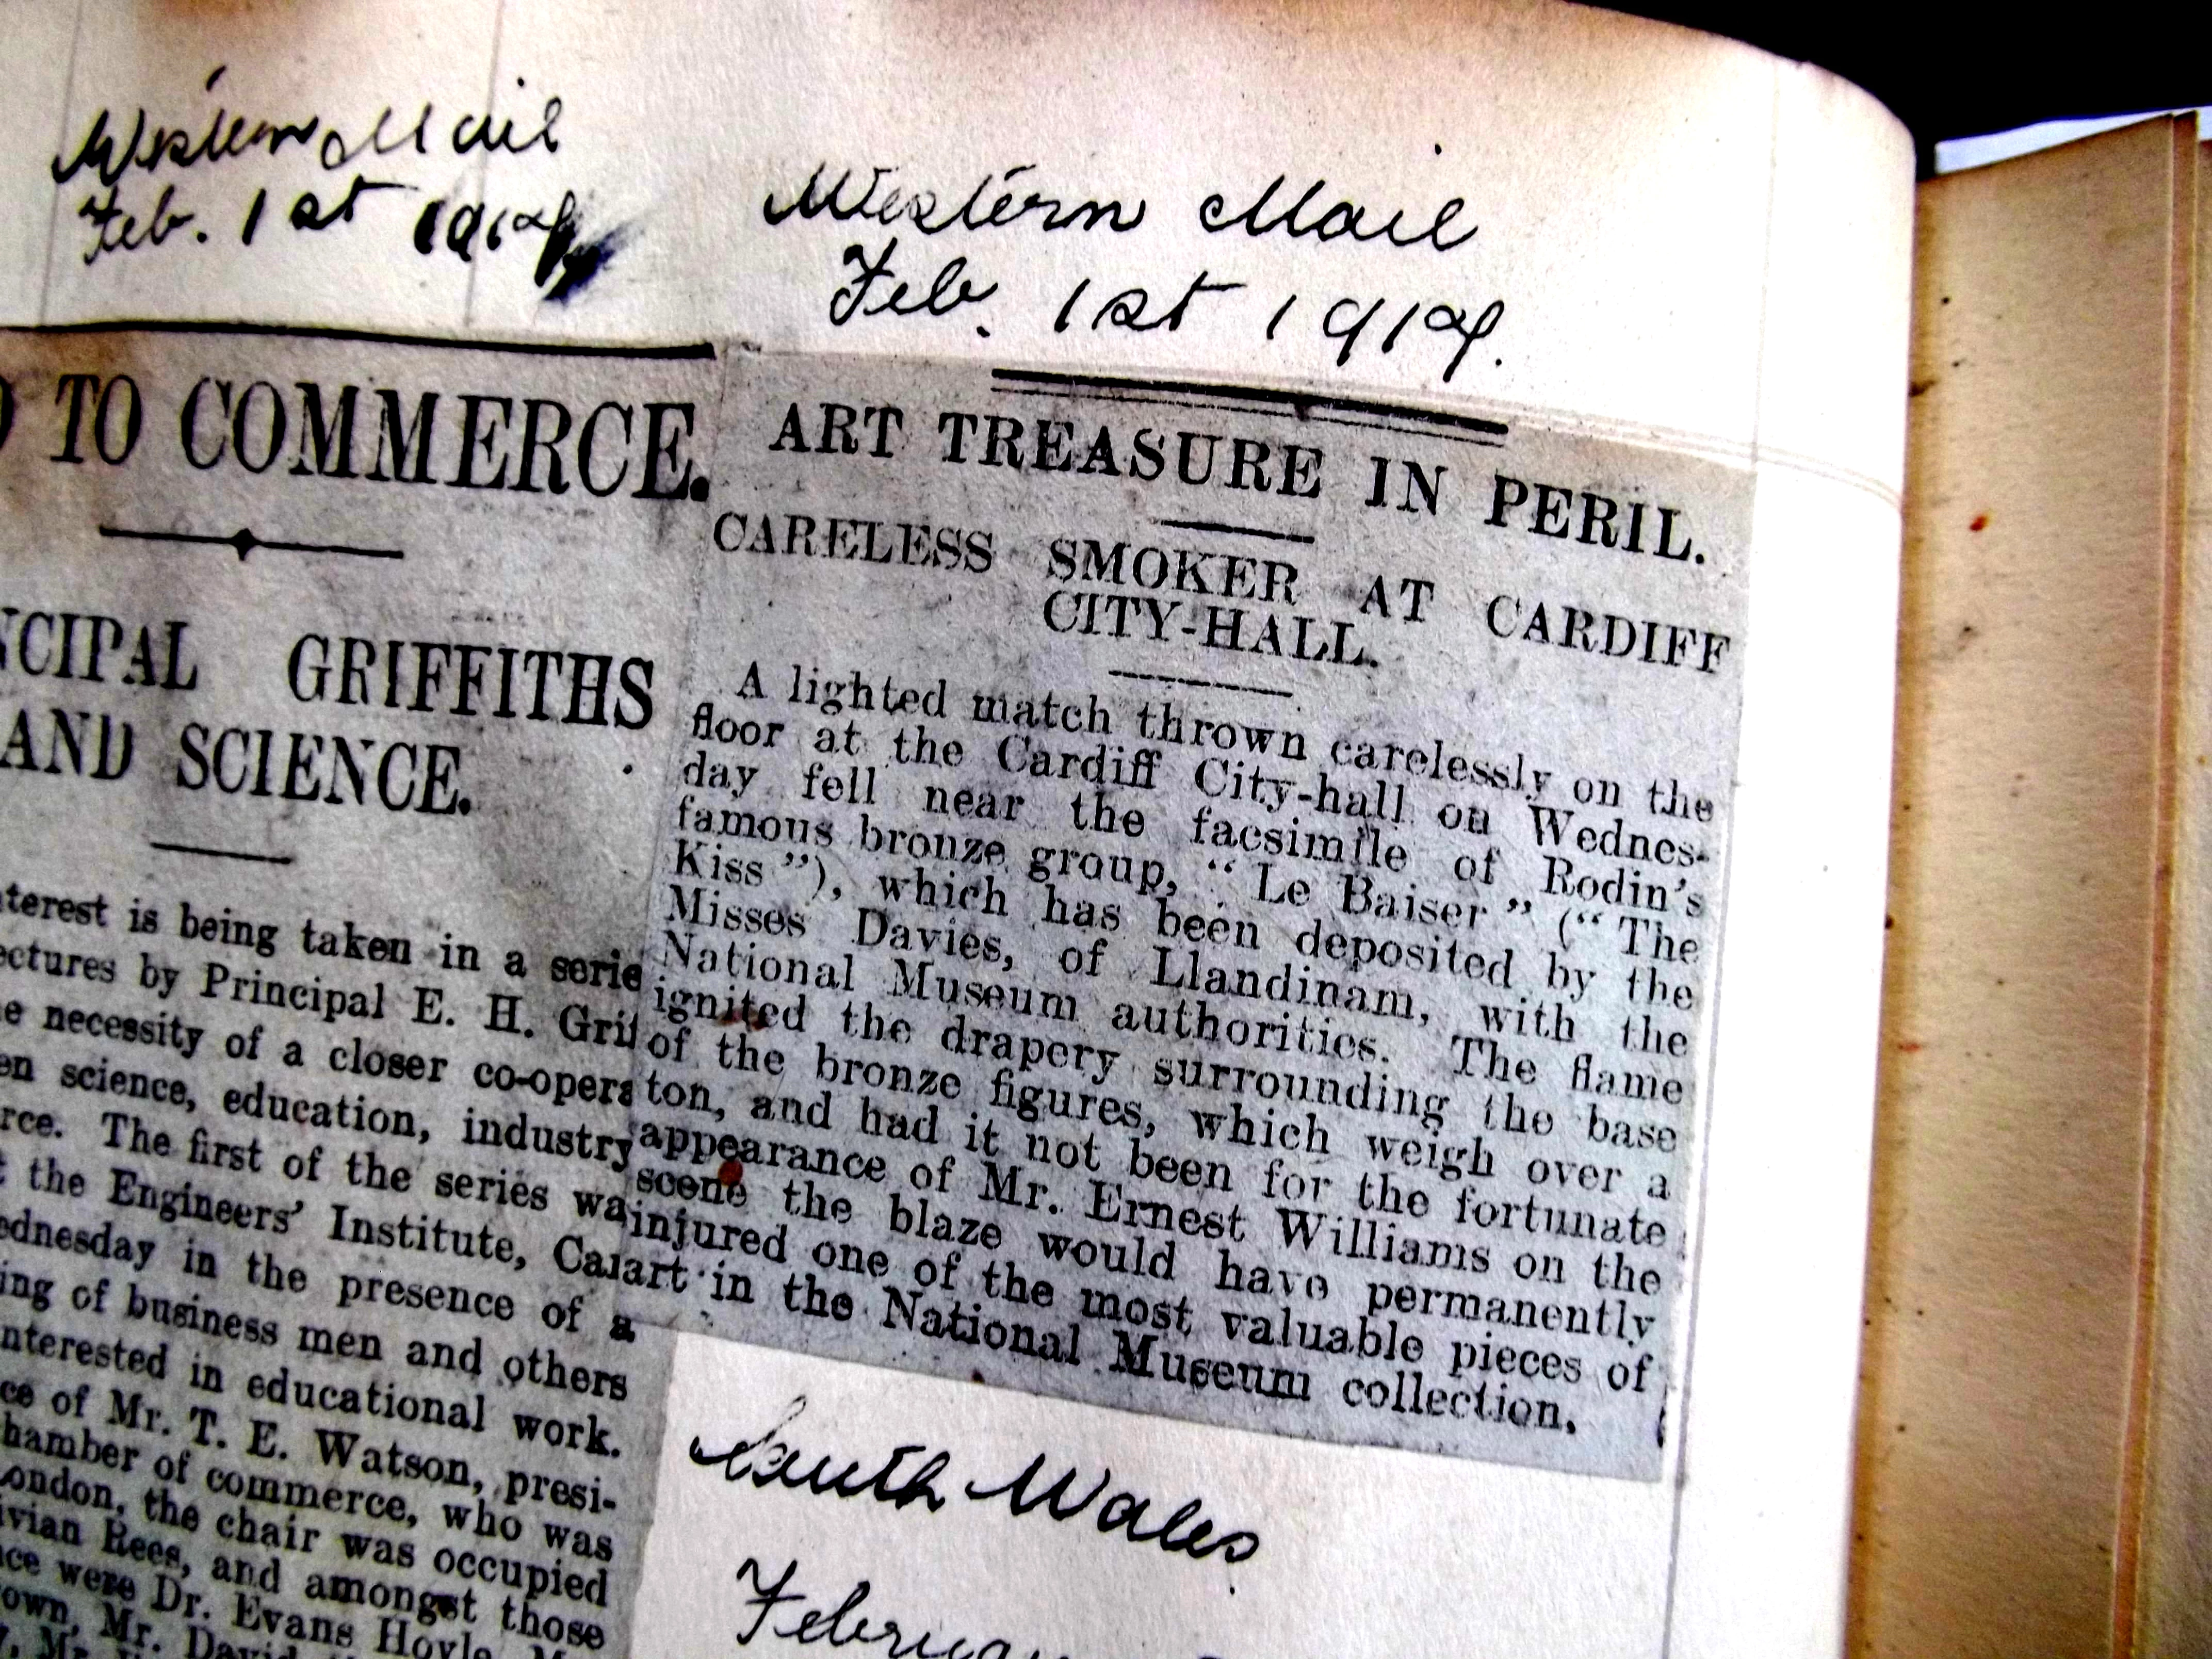 Western Mail
Feb. 1st 1917
Western Mail
Feb. 1st 1917.
TO COMMERCE.
NCIPAL GRIFFITHS
AND SCIENCE.
terest is being taken in a serie
ectures by Principal E. H. Grif
e necessity of a closer co-opera
en science, education, industry
rce. The first of the series wa
t the Engineers' Institute, Car
ednesday in the presence of a
ing of business men and others
nterested in educational work.
ce of Mr. T. E. Watson, presi-
hamber of commerce, who was
ondon, the chair was occupied
ivian Rees, and amongst those
nce were Dr. Evans Hoyle,
own, Mr. David
ART TREASURE IN PERIL.
CARELESS SMOKER AT CARDIFF
CITY-HALL.
A lighted match thrown carelessly on the
floor at the Cardiff City-hall on Wednes-
day fell near the facsimile of Rodin's
famous bronze group, "Le Baiser" ("The
Kiss"), which has been deposited by the
Misses Davies, of Llandinam, with the
National Museum authorities. The flame
ignited the drapery surrounding the base
of the bronze figures, which weigh over a
ton, and had it not been for the fortunate
appearance of Mr. Ernest Williams on the
scene the blaze would have permanently
injured one of the most valuable pieces of
art in the National Museum collection.
South Wales
Februar